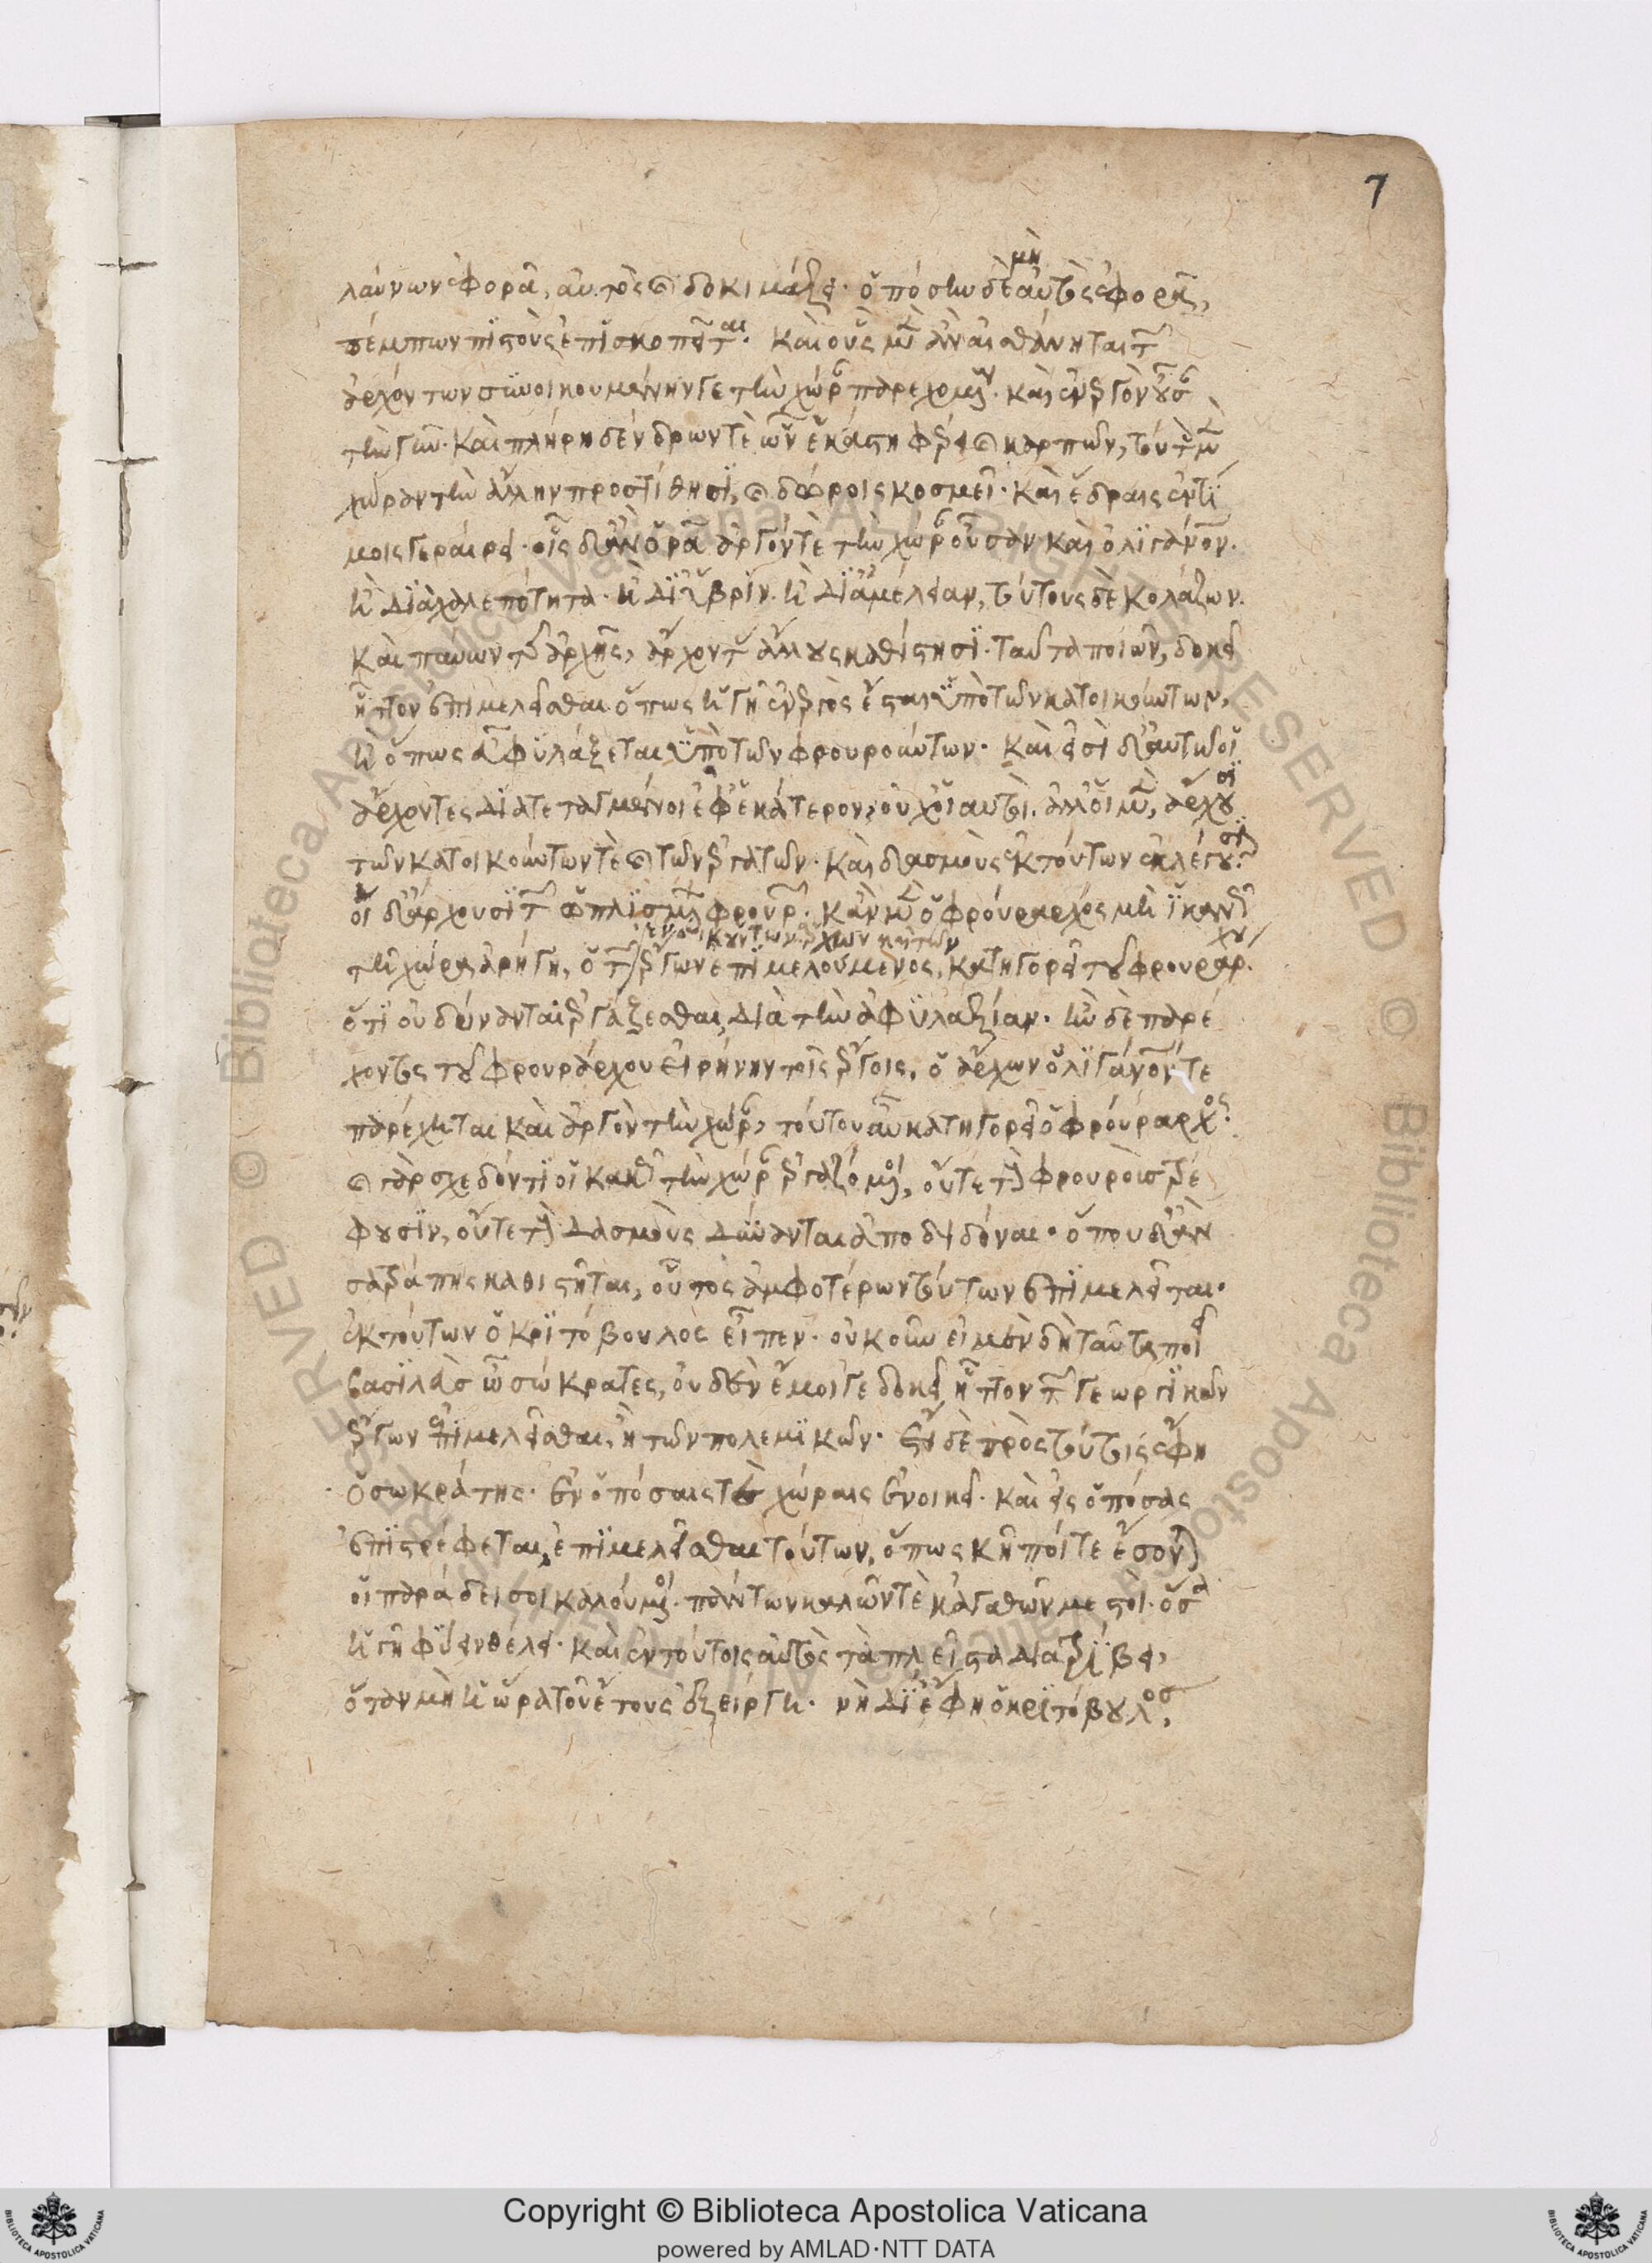 7
λαύνων ἐφορᾶ, αὐτὸς καὶ δοκιμάζει· ὁπόσην δὲ μὴ αὐτὸς ἐφορᾶ,
πέμπων πιστοὺς ἐπισκοπεῖται. καὶ οὓς μὲν ἂν αἰσθάνηται τῶν
ἀρχόντων συνοικουμένην γε τὴν χώραν παρεχομένους· καὶ ἐνεργὸν οὖσαν
τὴν γῆν· καὶ πλήρη δένδρων τὲ ὧν ἑκάστη φέρει καὶ καρπῶν, τούτοις μὲν
χώραν τὴν ἄλλην προστίθησι, καὶ δώροις κοσμεῖ· καὶ ἕδραις ἐντί
μοις γεραίρει· οἷς δ' ἂν ὁρᾶ ἀργόν τὲ τὴν χώραν οὖσαν καὶ ὀλιγάνθρωπον·
ἢ διὰ χαλεπότητα· ἢ δι' ὕβριν· ἢ δι' ἀμέλειαν, τούτους δὲ κολάζων·
καὶ παύων τῆς ἀρχῆς, ἄρχοντας ἄλλους καθίστησι· ταῦτα ποιῶν, δοκεῖ
ἧττον ἐπιμελεῖσθαι ὅπως ἡ γῆ ἐνεργὸς ἔσται ὑπὸ τῶν κατοικούντων,
ἢ ὅπως εὖ φυλάξεται ὑπὸ τῶν φρουρούντων· καὶ εἰσὶ δ' αὐτῶν οἱ
ἄρχοντες διατεταγμένοι ἐφ' ἑκάτερον, οὐχ οἱ αὐτοὶ. ἀλλ' οἱ μὲν, ἄρχουσι
τῶν κατοικούντων τὲ καὶ τῶν ἐργατῶν· καὶ δασμοὺς ἐκ τούτων ἐκλέγουσιν·
οἱ δ' ἄρχουσι τῶν ὡπλισμένων φρουρῶν· κἂν μὲν ὁ φρούραρχος μὴ ἱκανῶς
τῆ χώρα ἀρήγη, ὁ τῶν ἐνοικούντων ἄρχων καὶ τῶν ἔργων ἐπιμελούμενος, κατηγορεῖ τοῦ φρουράρχου
ὅτι οὐ δύνανται ἐργάζεσθαι, διὰ τὴν ἀφυλαξίαν· ἢν δὲ παρέ
χοντος τοῦ φρουράρχου εἰρήνην τοῖς ἔργοις, ὁ ἄρχων ὀλιγάνθρωπόν τε
παρέχηται καὶ ἀργὸν τὴν χώραν, τούτου αὖ κατηγορεῖ ὁ φρούραρχος·
καὶ γὰρ σχεδόν τι οἱ κακῶς τὴν χώραν ἐργαζόμενοι, οὔτε τοὺς φρουροὺς τρέ
φουσιν, οὔτε τοὺς δασμοὺς δύνανται ἀποδιδόναι· ὅπου δ' ἂν
σατράπης καθιστῆται, οὗτος ἀμφοτέρων τούτων ἐπιμελεῖται·
ἐκ τούτων ὁ κριτόβουλος εἶπεν· οὐκοῦν εἰ μὲν δὴ ταῦτα ποιεῖ
βασιλεὺς ὦ σώκρατες, οὐδὲν ἔμοιγε δοκεῖ ἧττον τῶν γεωργικῶν
ἔργων ἐπιμελεῖσθαι, ἢ τῶν πολεμικῶν· ἔτι δὲ πρὸς τούτοις ἔφη
ὁ σωκράτης· ἐν ὁπόσαις τὲ χώραις ἐνοικεῖ· καὶ εἰς ὁπόσας
ἐπιστρέφεται, ἐπιμελεῖσθαι τούτων, ὅπως κῆποί τε ἔσονται
οἱ παράδεισοι καλούμενοι· πάντων καλῶν τὲ κἀγαθῶν μεστοὶ· ὅσα
ἡ γῆ φύειν θέλει· καὶ ἐν τούτοις αὐτὸς τὰ πλεῖστα διατρίβει,
ὅταν μὴ ἡ ὥρα τοῦ ἔτους ἐξείργη· νὴ δί' ἔφη ὁ κριτόβουλος,
Copyright © Biblioteca Apostolica Vaticana
powered by AMLAD·NTT DATA